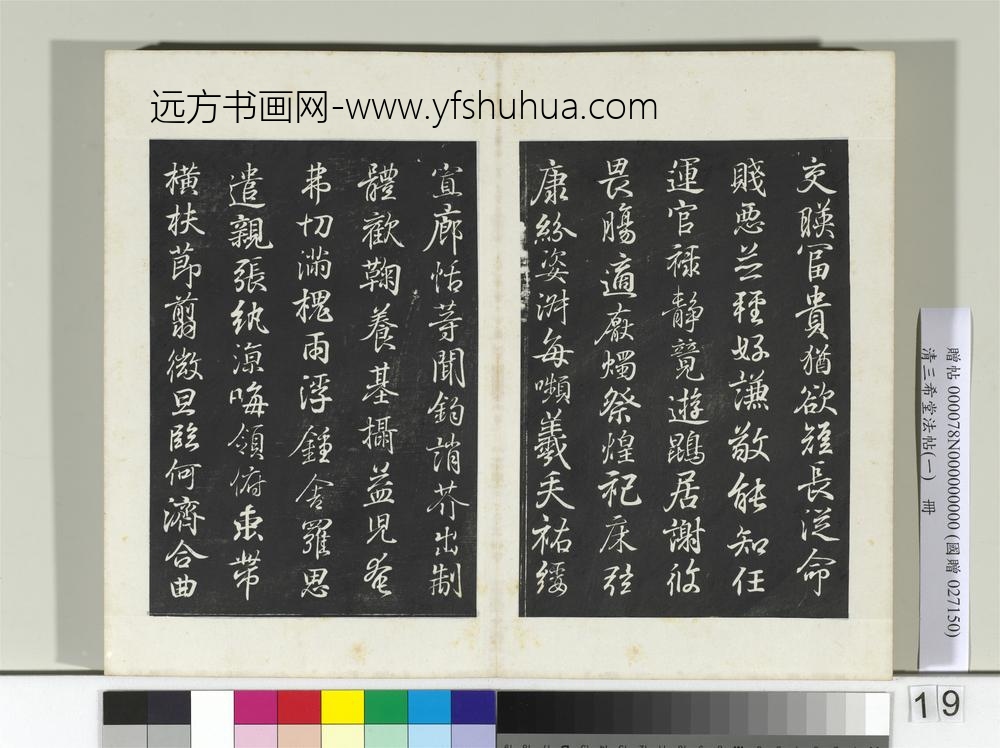 远方书画网-www.yfshuhua.com
交映富貴猶欲短長從命
賤惡並輕好謙敬能知任
運官祿靜競遊鵾居謝攸
畏觴適厥燭祭煌祀床弦
康紛姿淵每嚬羲矢祐綏
宣廊恬等聞鈞誚芥出制
體歡鞠養基攝益兒奄
弗切滿槐雨浮鍾舍羅思
遣親張紈涼晦領俯束帶
橫扶節翦微旦臨何濟合曲
贈帖 000078N000000000 (國贈 027150)
清三希堂法帖(一) 冊
19